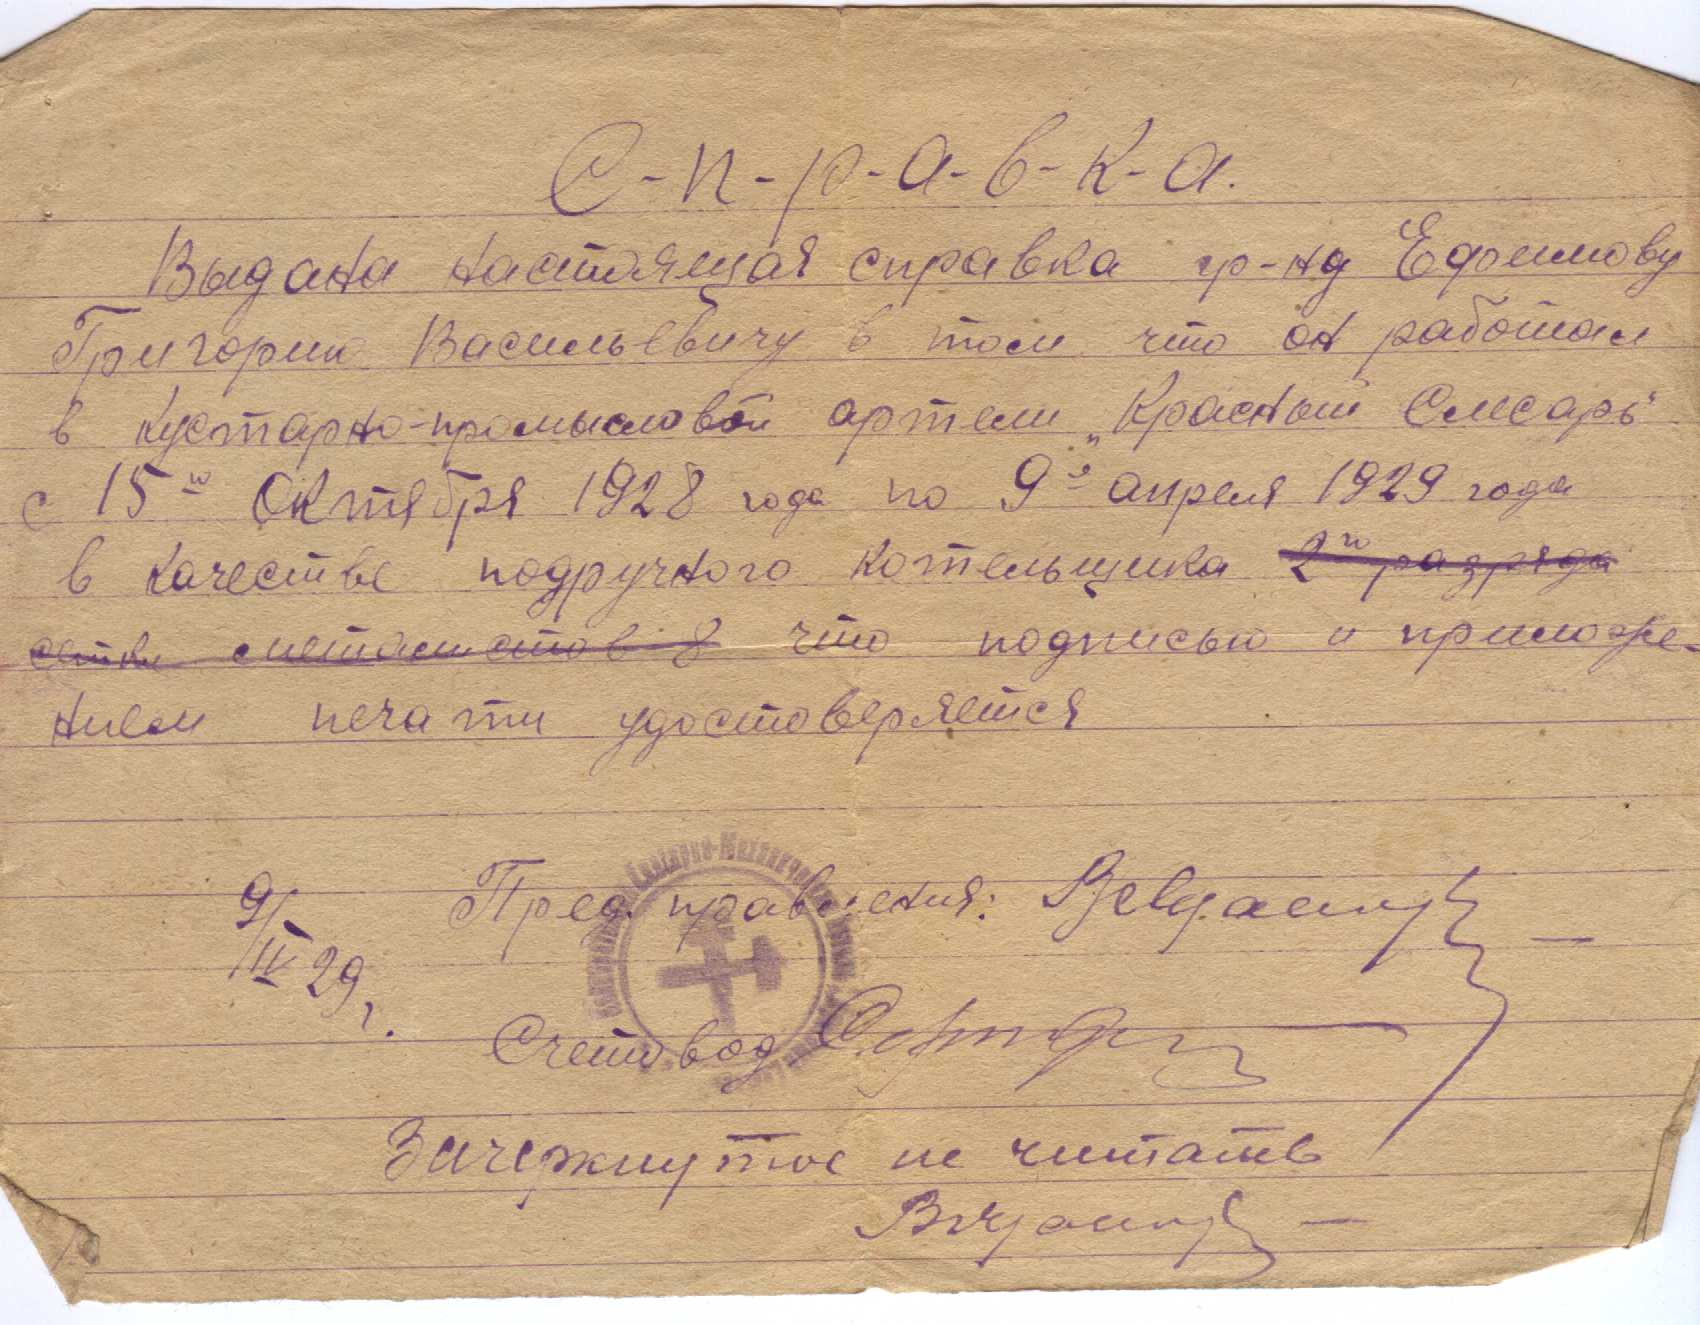 С-п-р-а-в-к-а.
Выдана настоящая справка гр-ну Ефимову
Григорию Васильевичу в том что он работал
в кустарно-промысловой артели „Красный Слесарь"
с 15го октября 1928 года по 9е апреля 1929 года
в качестве подручного котельщика 2го разряда
сетки металистов в что подписью и приложе-
нием печати удостоверяется
9/IV 29 г.
Пред. правления:
Счетовод
Зачеркнутое не читать